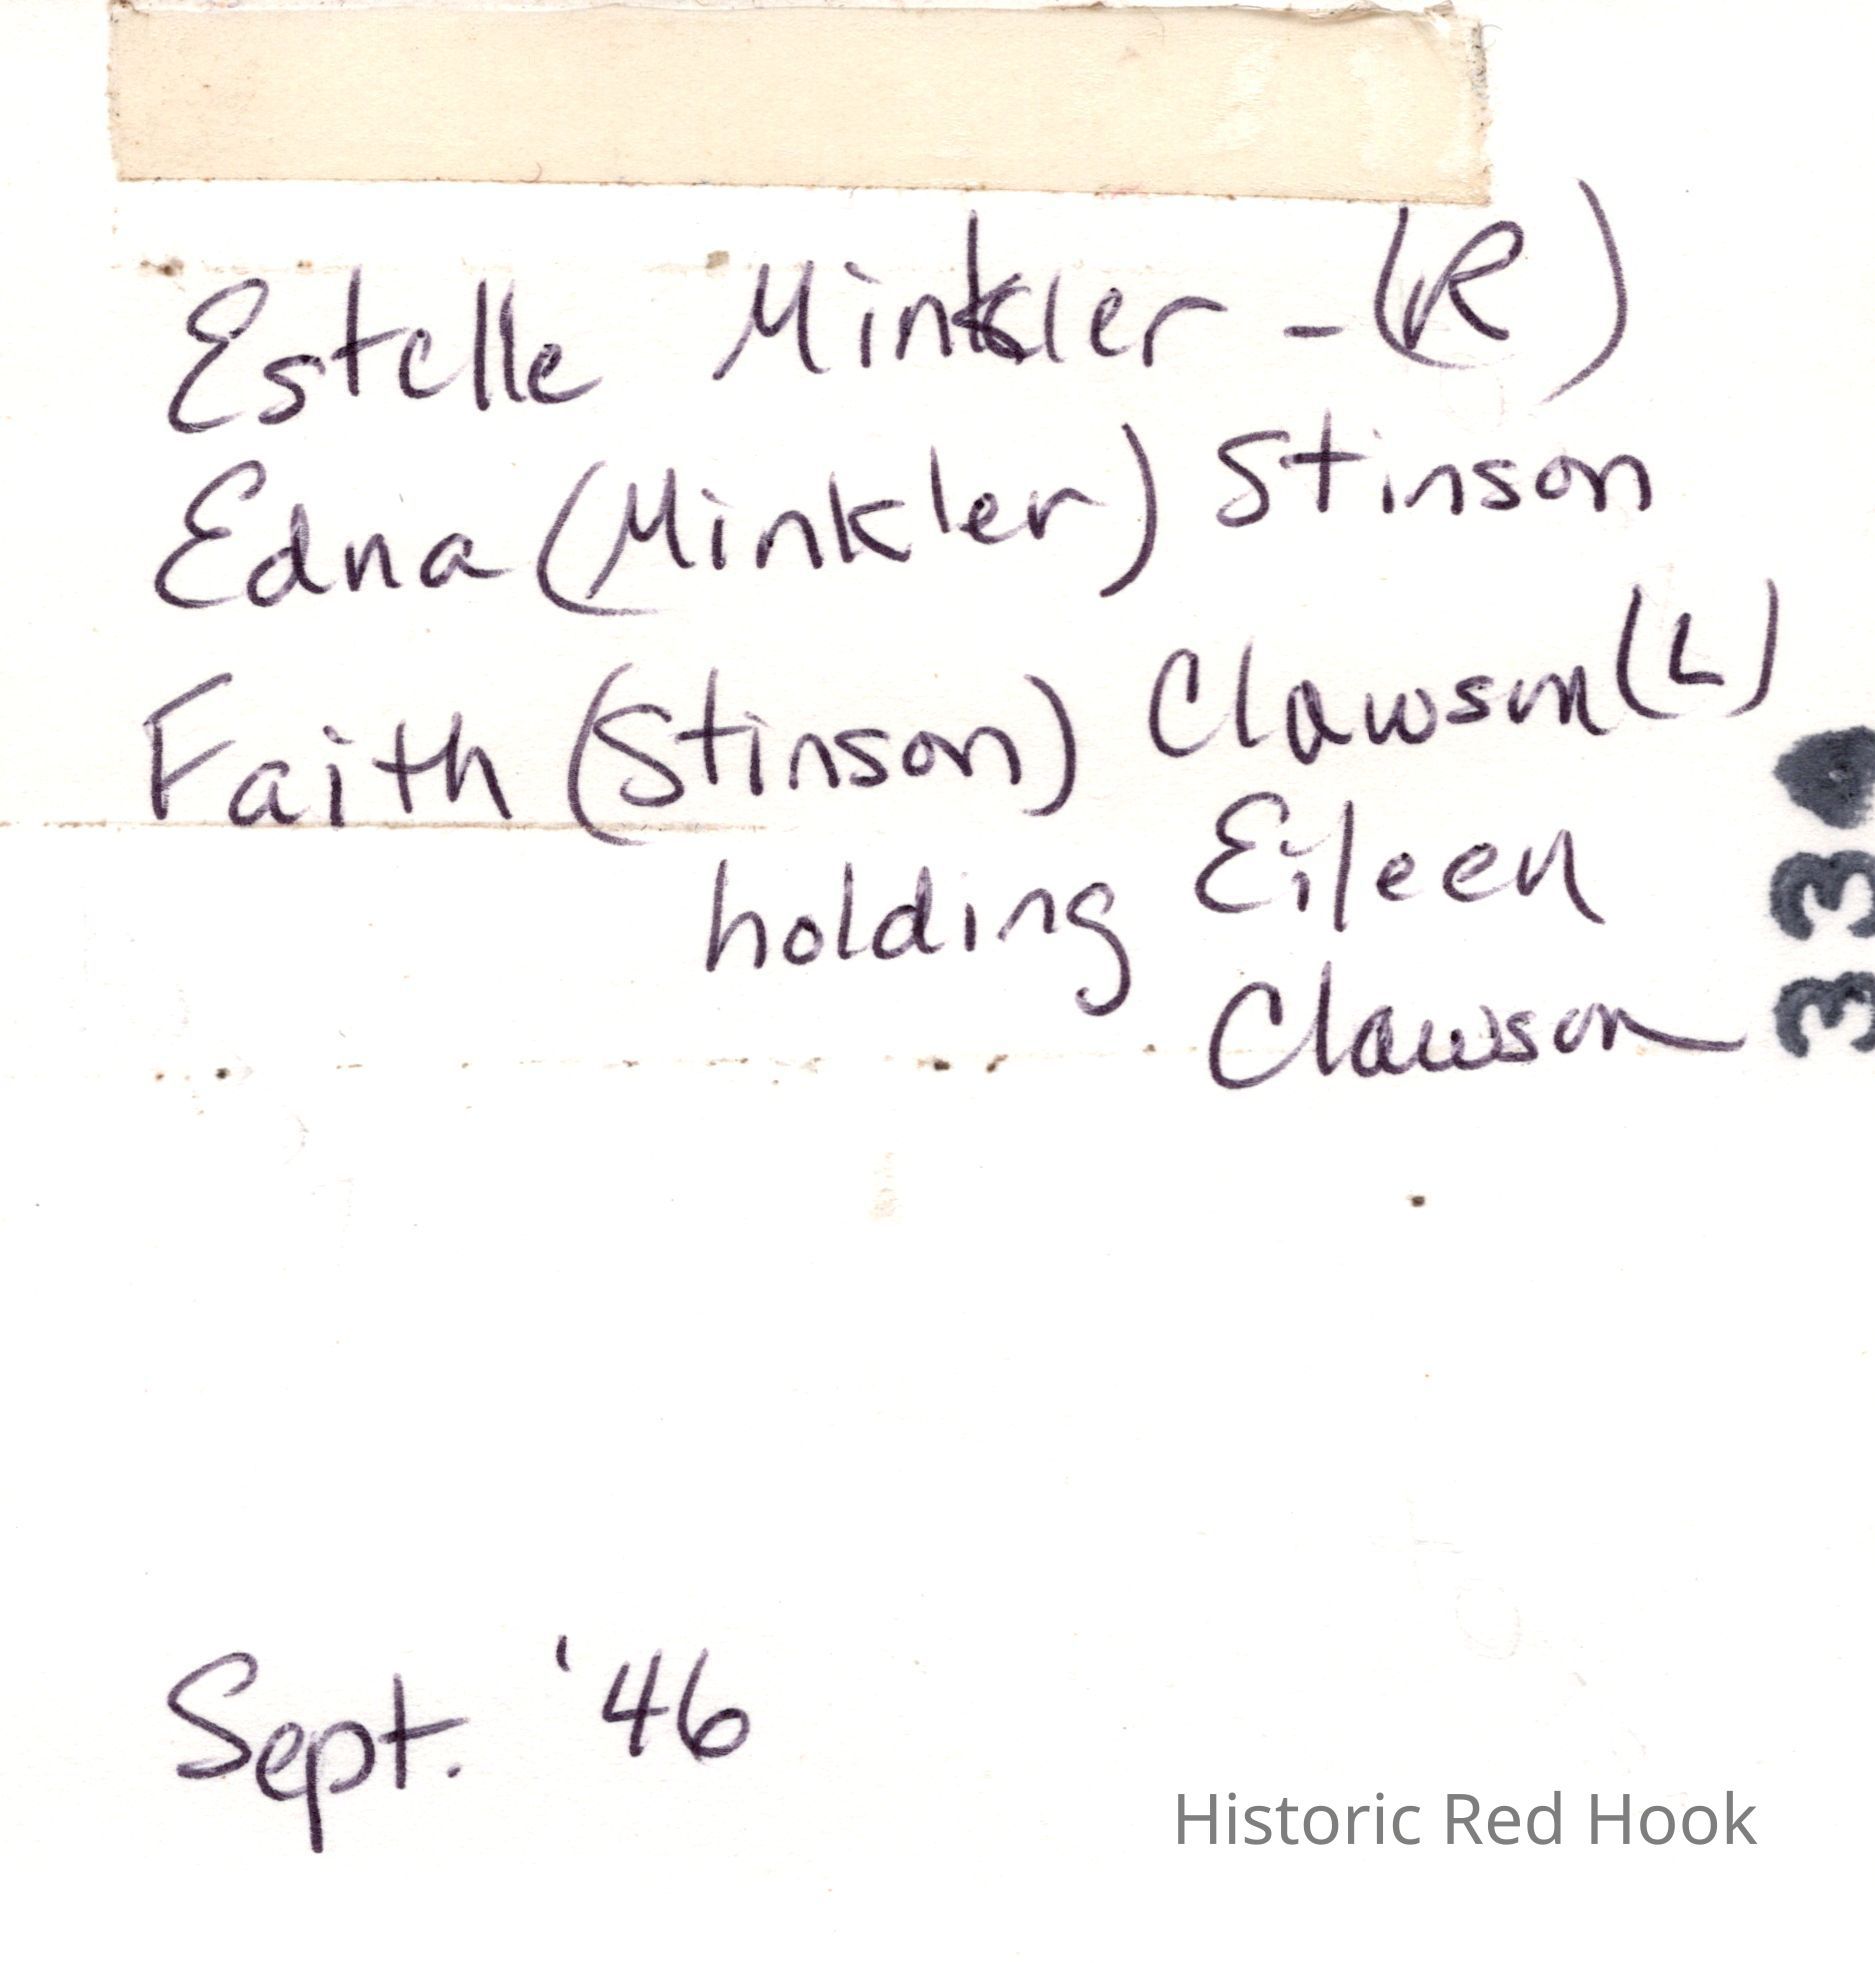 Estelle Minkler - (R)
Edna (Minkler) Stinson
Faith (Stinson) Clawson (L)
holding Eileen
Clawson
33
Sept. '46
Historic Red Hook